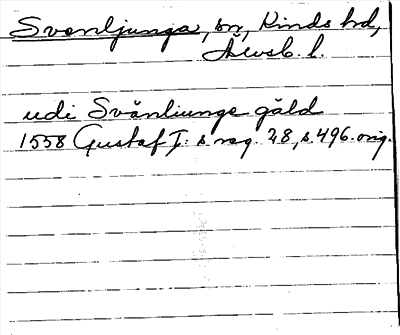 Svenljunga, sn, Kinds hd,
Älvsb. l.
udi Svänliunge gäld
1558 Gustaf I:s reg. 28, s. 496. orig.